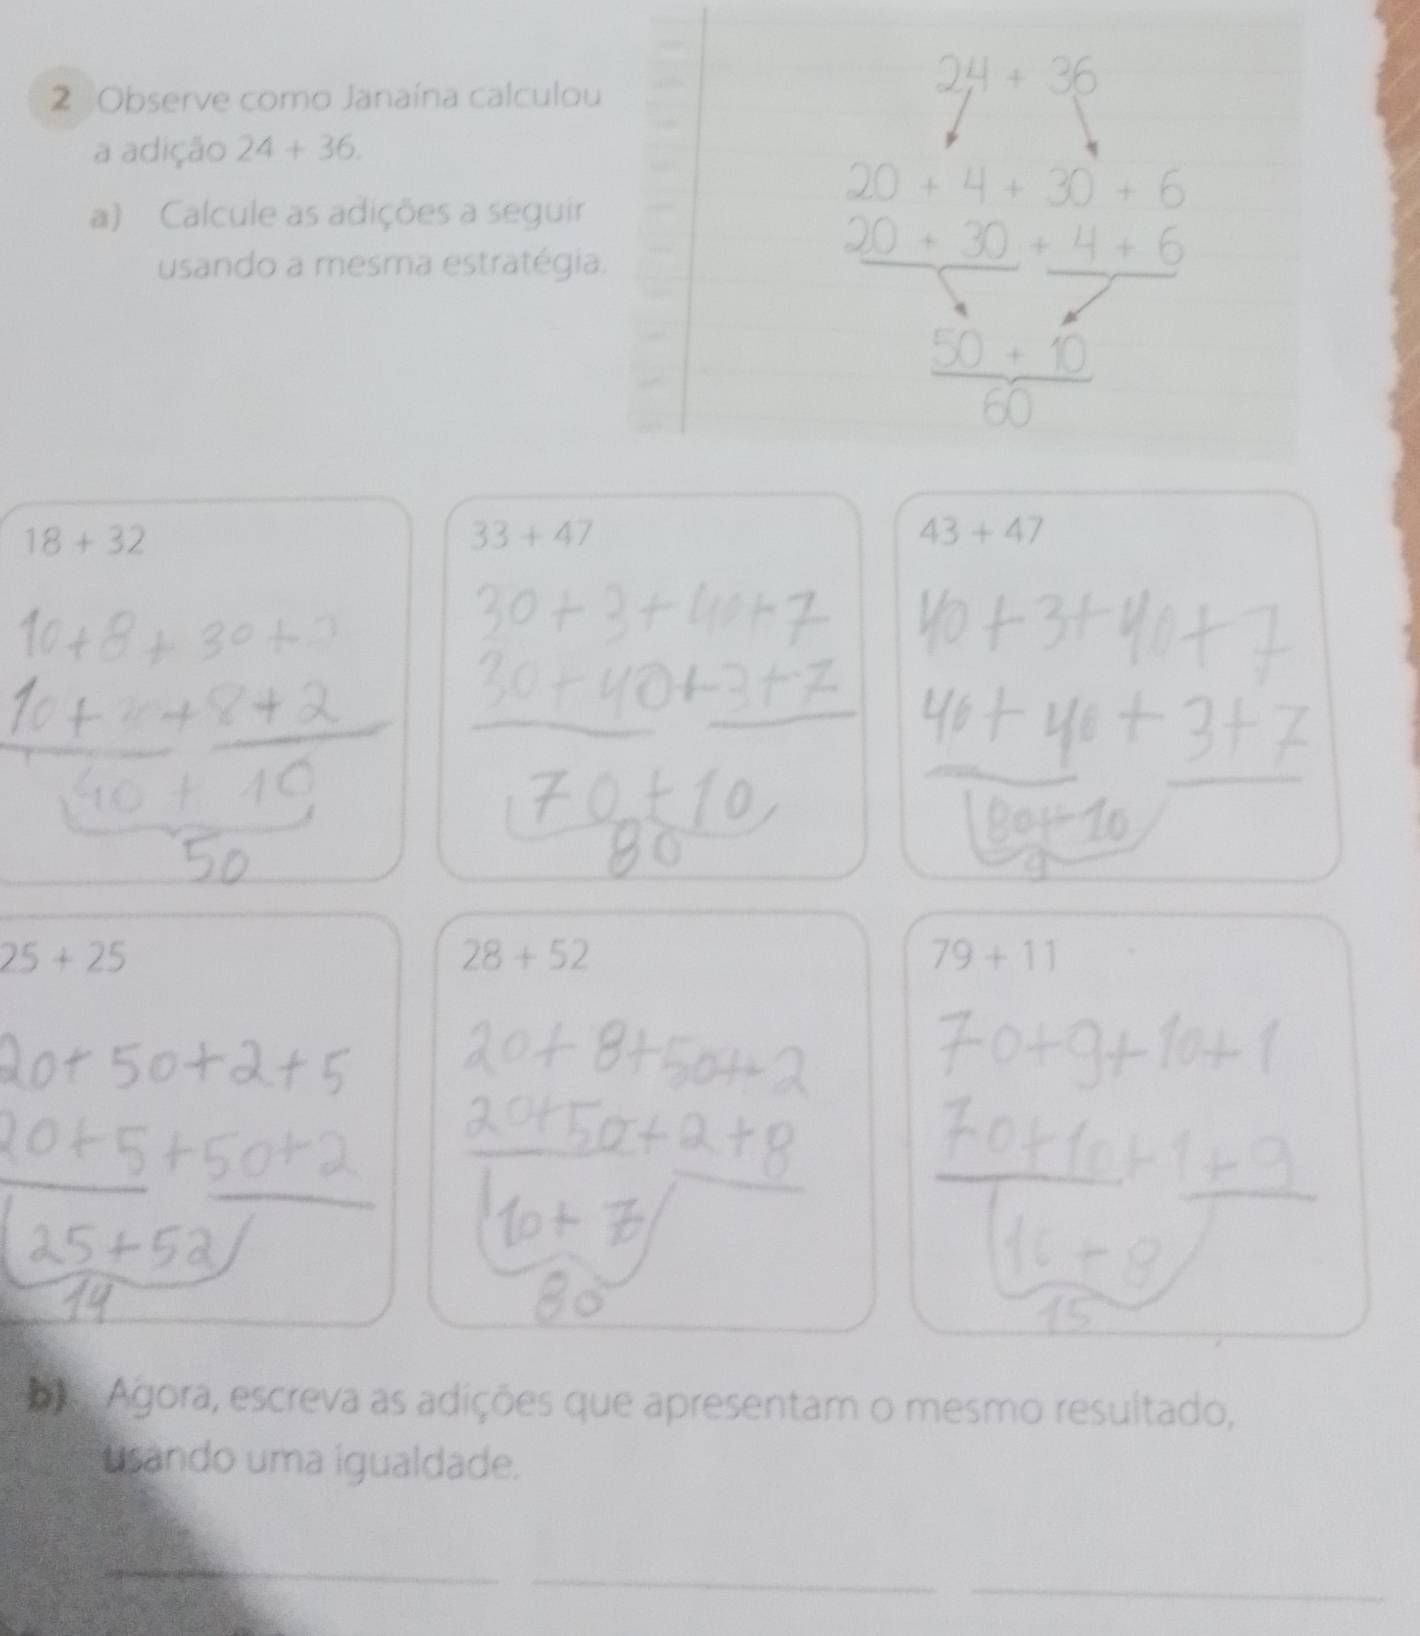 2 Observe como Janaína calculou
a adição 24 + 36.
a) Calcule as adições a seguir
usando a mesma estratégia.
24 + 36
20 + 4 + 30 + 6
20 + 30 + 4 + 6
50 + 10
60
18 + 32
10 + 8 + 30 +
10 + + 8 + 2
40 + 10
50
33 + 47
30 + 3 + 40 + 7
30 + 40 + 3 + 7
70 + 10
80
43 + 47
40 + 3 + 40 + 7
40 + 40 + 3 + 7
80 + 10
9
25 + 25
20 + 50 + 2 + 5
20 + 5 + 50 + 2
25 + 52
14
28 + 52
20 + 8 + 50 + 2
20 + 50 + 2 + 8
10 + 7
80
79 + 11
70 + 9 + 10 + 1
70 + 10 + 1 + 9
+ 8
15
b) Agora, escreva as adições que apresentam o mesmo resultado,
usando uma igualdade.